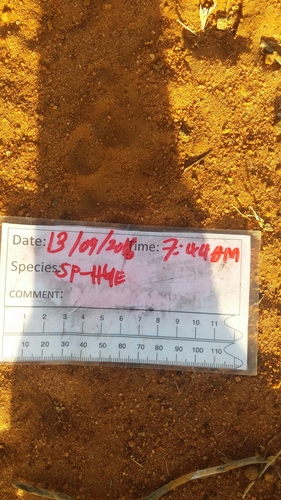 Date: 13/09/2016 Time: 7:44AM
Species: SP-HYE
COMMENT:
1 2 3 4 5 6 7 8 9 10 11
10 20 30 40 50 60 70 80 90 100 110